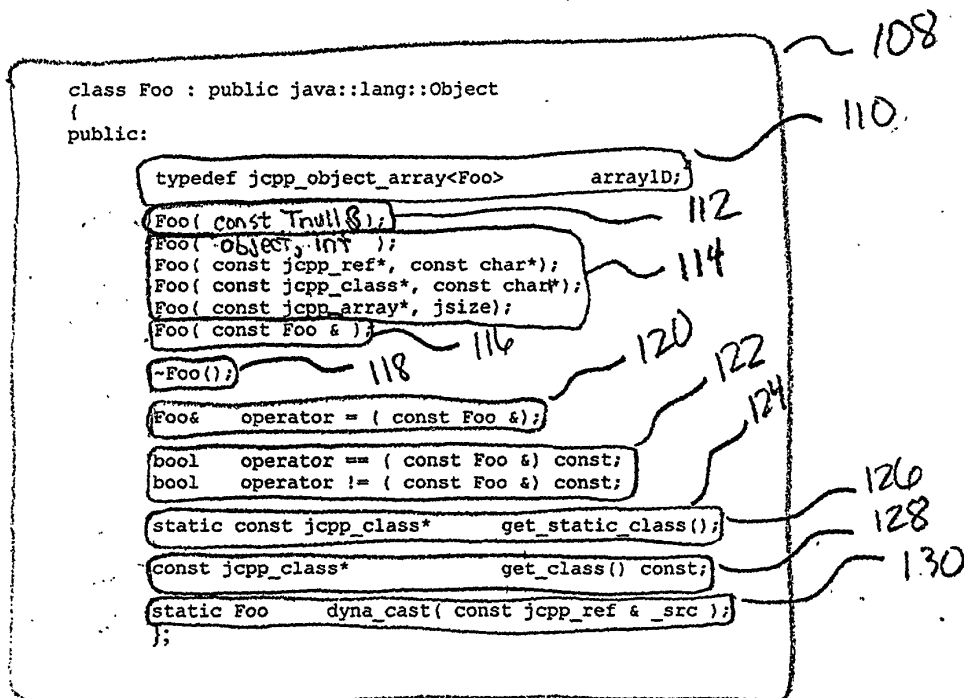 108
class Foo : public java::lang::Object
{
public:
110
typedef jcpp_object_array<Foo> array1D;
Foo( const Tnull &); 112
Foo( object, int );
Foo( const jcpp_ref*, const char*); 114
Foo( const jcpp_class*, const char*);
Foo( const jcpp_array*, jsize);
Foo( const Foo & ); 116
~Foo(); 118
120
Foo& operator = ( const Foo &);
122
bool operator == ( const Foo &) const;
bool operator != ( const Foo &) const;
124
static const jcpp_class* get_static_class();
126
const jcpp_class* get_class() const;
128
static Foo dyna_cast( const jcpp_ref & _src );
130
};